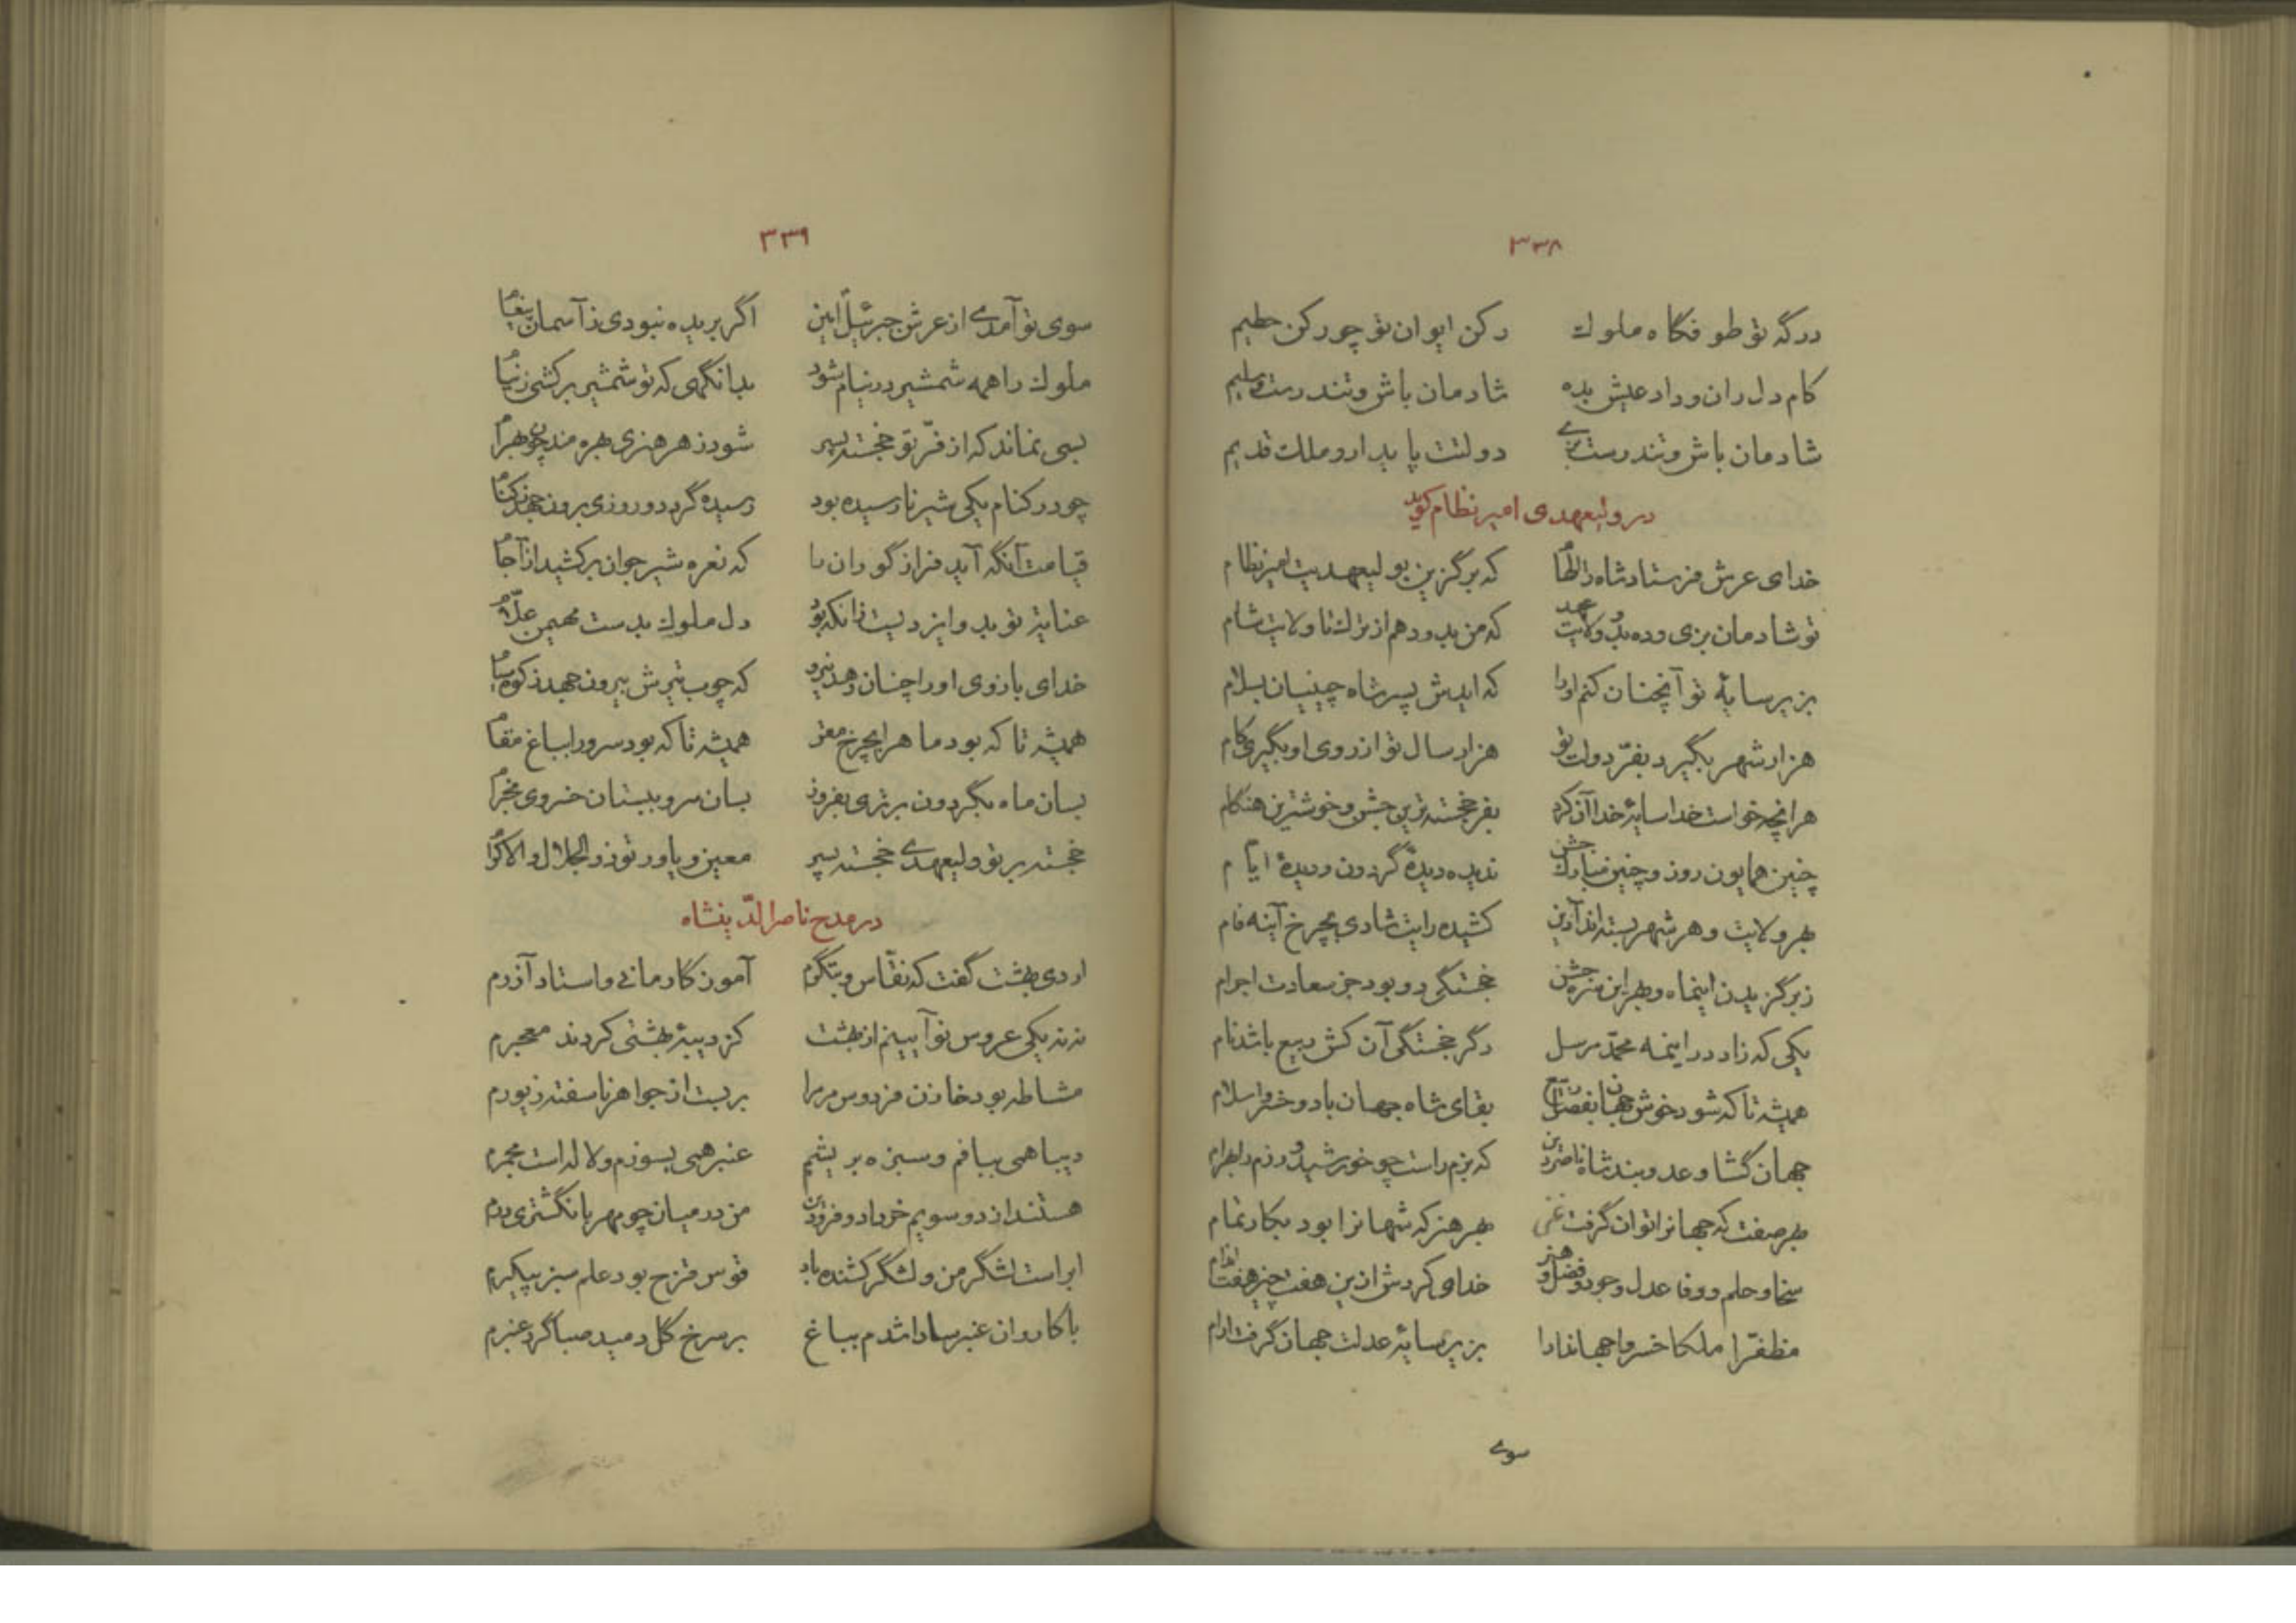 ۳۳۸
درگه تو طوفگاه ملوک رکن ایوان تو چو رکن حطیم
کام دل ران و داد عیش بده شادمان باش و تندرست و سلیم
شادمان باش و تندرست بزی دولتت پایدار و ملک قدیم
در ولیعهدی امیر نظام گوید
خدای عرش فرستاد شاه را الهام که برگزین بولیعهدیت امیر نظام
تو شادمان بزی و ده بدو ولایت عهد که من بدو دهم از ترک تا ولایت شام
بزیر سایهٔ تو آنچنان کنم او را که ایدش پسر شاه چینیان بسلام
هزار شهر بگیرد بفرّ دولت تو هزار سال تو از روی او بگیری کام
هر انچه خواست خدا سایهٔ خدا آن کرد بفرخجسته‌ترین جشن و خوشترین هنگام
چنین همایون روز و چنین مبارک جشن ندیده دیدهٔ گردون و دیدهٔ ایام
بهر ولایت و هر شهر بسته‌اند آذین کشیده رایت شادی بچرخ آینه فام
ز برگزیدن اینماه و بهر این سره جشن خجستگی دو بود جز سعادت اجرام
یکی که زاد در اینمه محمّد مرسل دگر خجستگی آن کش ربیع باشد نام
همیشه تا که شود خوش جهان بفصل ربیع بقای شاه جهان باد و خسرو اسلام
جهان گشا و عدو بند شاه ناصر دین که بزم راست چو خورشید و رزم را بهرام
بهر صفت که جهانرا توان گرفت غنی بهر هنر که شهانرا بود بکار تمام
سخا و حلم و وفا عدل و جود و فضل و هنر خدای کردش ازین هفت چیز هفت اندام
مظفّرا ملکا خسروا جهاندارا بزیر سایهٔ عدلت جهان گرفت ارام
سوی
۳۳۹
سوی تو آمدی از عرش جبرئیل امین اگر بریده نبودی ز آسمان پیغام
ملوک را همه شمشیر در نیام شود بدانگهی که تو شمشیر برکشی ز نیام
بسی نماند که از فرّ تو خجسته پسر شود ز هر هنری بهره‌مند چون بهرام
چو در کنام یکی شیر نارسیده بود رسیده گردد و روزی برون جهد ز کنام
قیامت آنگه آید فراز گوران را که نعره شیر جوان برکشید از آجام
عنایتی تو بدو ایزدیست زانکه بود دل ملوک بدست مهیمن علّام
خدای بازوی او را چنان دهد نیرو که چوب تیرش بیرون جهد ز کوه سام
همیشه تا که بود ماه را بچرخ مقر همیشه تا که بود سرو را بباغ مقام
بسان ماه بگردون برتری بفروز بسان سرو ببستان خسروی بخرام
خجسته بر تو ولیعهدی خجسته پسر معین و یاور تو ذو الجلال و الاکرام
در مدح ناصر الدّینشاه
اردی بهشت گفت که نقّاش و بتگرم آموزگار مانی و استاد آزرم
نه نه یکی عروس نو آیینم از بهشت کز دیبهٔ بهشتی کردند معجرم
مشاطه بود خازن فردوس مر مرا بر بست از جواهر ناسفته زیورم
دیبا همی ببافم و سبزه بریشم عنبر همی بسوزم و لاله است مجمرم
هستند از دو سویم خرداد و فرودین من در میان چو مهر بانگشتری درم
ابر است لشگر من و لشگرکشنده باد قوس قزح بود علم سبز پیکرم
با کاروان عنبر سارا شدم بباغ بر سرخ گل دمید صبا گرد عنبرم